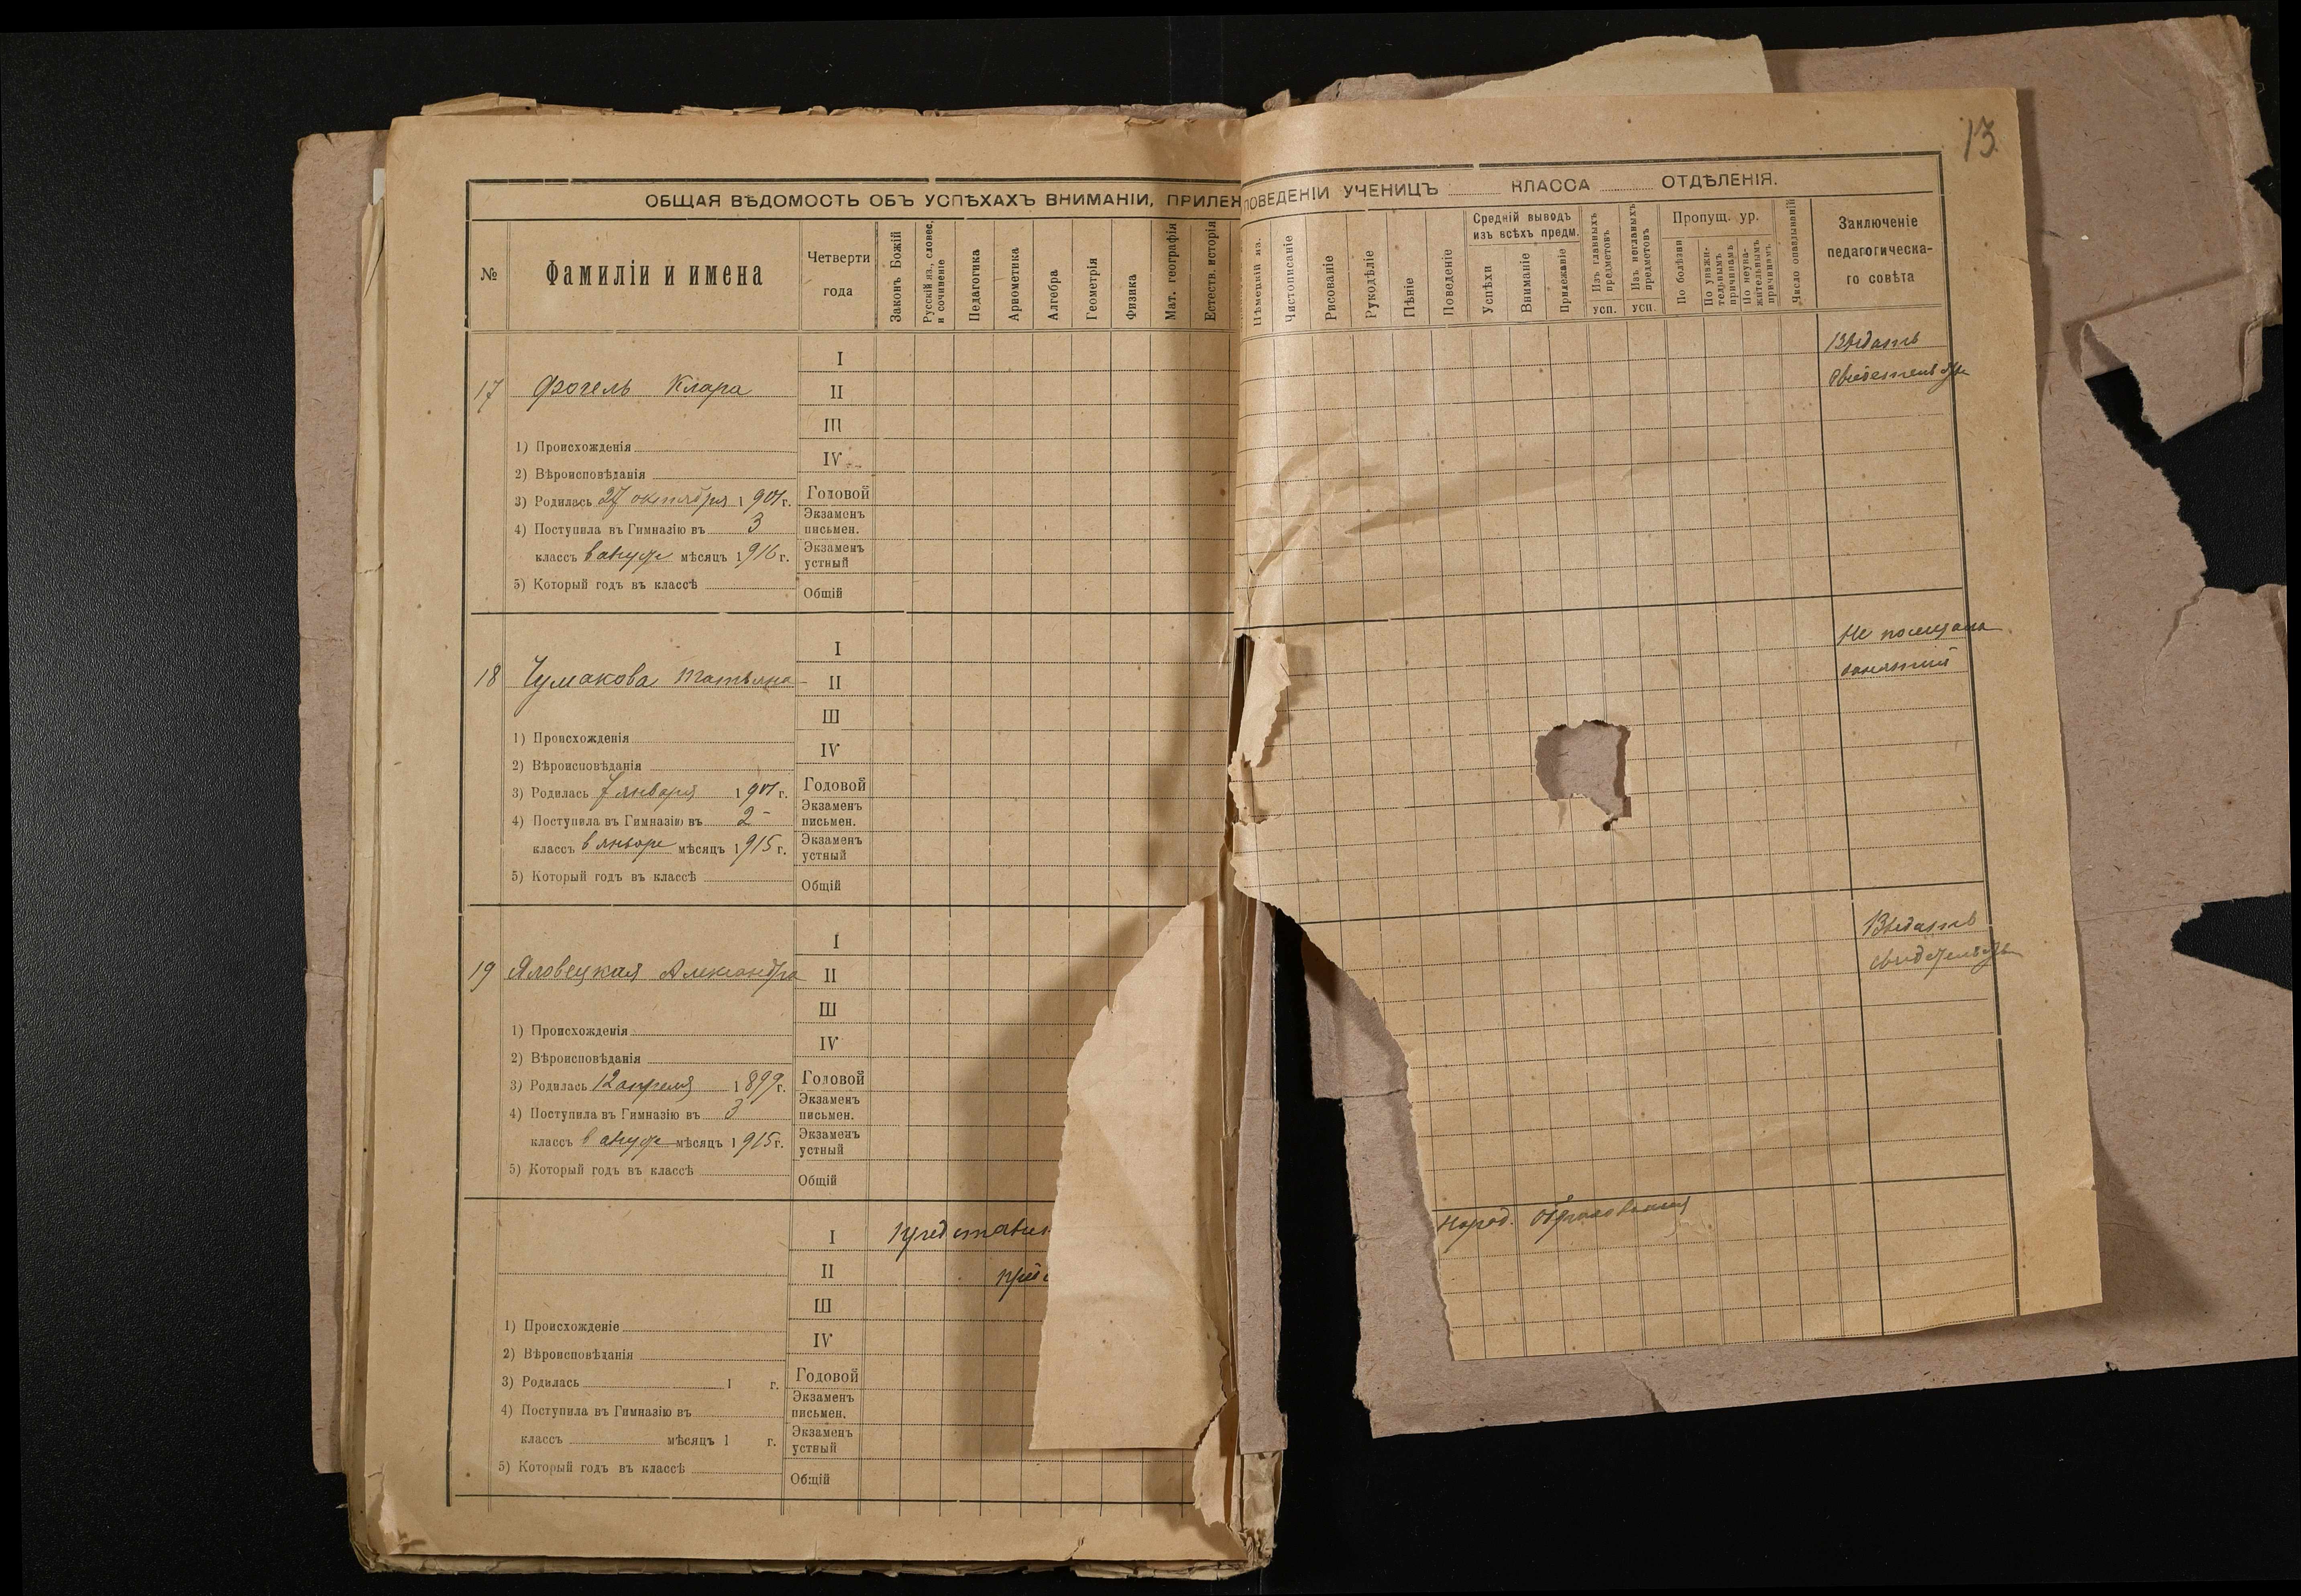 13
ОБЩАЯ ВѢДОМОСТЬ ОБЪ УСПѢХАХЪ ВНИМАНІИ, ПРИЛЕЖ ПОВЕДЕНІИ УЧЕНИЦЪ КЛАССА ОТДѢЛЕНІЯ.
№
Фамиліи и имена
Четверти
года
Законъ Божій
Русскій яз., словес.
и сочиненіе
Педагогика
Ариөметика
Алгебра
Геометрія
Физика
Мат. географія
Естеств. исторія
Нѣмецкій яз.
Чистописаніе
Рисованіе
Рукодѣліе
Пѣніе
Поведеніе
Средній выводъ
изъ всѣхъ предм.
Успѣхи
Вниманіе
Прилежаніе
Изъ главныхъ
предметовъ
усп.
Изъ неглавныхъ
предметовъ
усп.
Пропущ. ур.
По болѣзни
По уважи-
тельнымъ
причинамъ
По неува-
жительнымъ
причинамъ
Число опаздываній
Заключеніе
педагогическа-
го совѣта
17 Фогель Клара
1) Происхожденія
2) Вѣроисповѣданія
3) Родилась 27 октября 1901 г.
4) Поступила въ Гимназію въ 3
классъ в августе мѣсяцъ 1916 г.
5) Который годъ въ классѣ
I
II
III
IV
Годовой
Экзаменъ
письмен.
Экзаменъ
устный
Общій
Выдать
свидетельство
18 Чумакова Татьяна
1) Происхожденія
2) Вѣроисповѣданія
3) Родилась 7 января 1901 г.
4) Поступила въ Гимназію въ 2
классъ в январе мѣсяцъ 1915 г.
5) Который годъ въ классѣ
I
II
III
IV
Годовой
Экзаменъ
письмен.
Экзаменъ
устный
Общій
Не посещала
занятий
19 Яловецкая Александра
1) Происхожденія
2) Вѣроисповѣданія
3) Родилась 12 апреля 1899 г.
4) Поступила въ Гимназію въ 3
классъ в августе мѣсяцъ 1915 г.
5) Который годъ въ классѣ
I
II
III
IV
Годовой
Экзаменъ
письмен.
Экзаменъ
устный
Общій
Выдать
свидетельство
1) Происхожденіе
2) Вѣроисповѣданія
3) Родилась 1 г.
4) Поступила въ Гимназію въ
классъ мѣсяцъ 1 г.
5) Который годъ въ классѣ
I
II
III
IV
Годовой
Экзаменъ
письмен.
Экзаменъ
устный
Общій
Представит
Народ. Образования